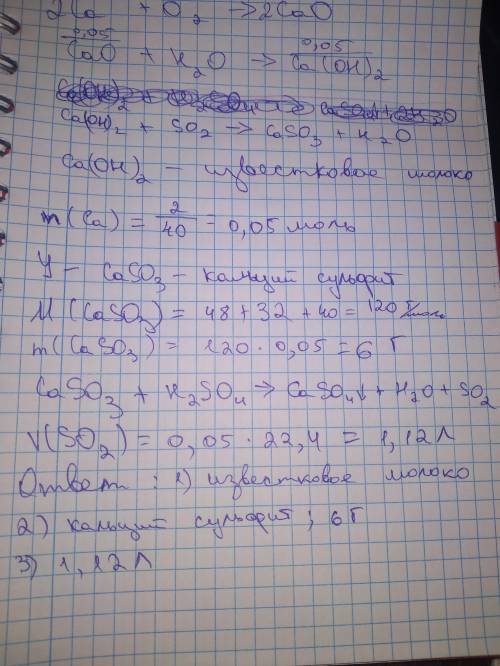 2Ca + O2 → 2CaO
0,05 0,05
CaO + H2O → Ca(OH)2
Ca(OH)2 + SO2 → CaSO3 + H2O
Ca(OH)2 – известковое молоко
m(Ca) = 2/40 = 0,05 моль
У – CaSO3 – кальций сульфит
M(CaSO3) = 48 + 32 + 40 = 120 г/моль
m(CaSO3) = 120 · 0,05 = 6 г
CaSO3 + H2SO4 → CaSO4↓ + H2O + SO2
V(SO2) = 0,05 · 22,4 = 1,12 л
Ответ: 1) известковое молоко
2) кальций сульфит; 6 г
3) 1,12 л